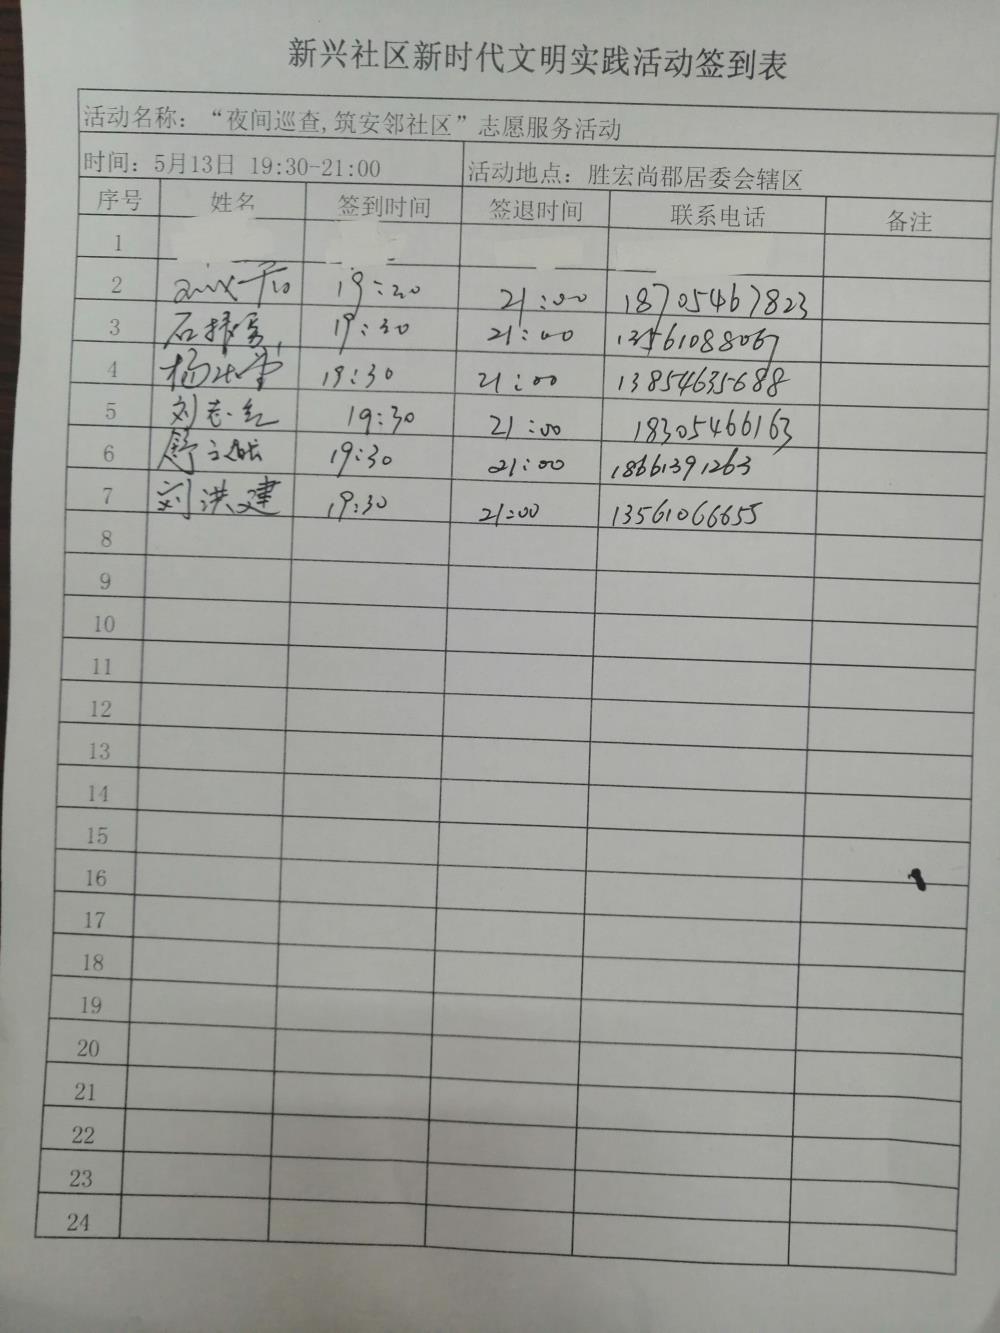 新兴社区新时代文明实践活动签到表
活动名称：“夜间巡查,筑安邻社区”志愿服务活动
时间：5月13日 19:30-21:00 活动地点：胜宏尚郡居委会辖区
序号 姓名 签到时间 签退时间 联系电话 备注
1
2 19:20 21:00 18705467823
3 石 19:30 21:00 13561088067
4 杨 19:30 21:00 13854635688
5 刘志红 19:30 21:00 18305466163
6 舒 19:30 21:00 18661391263
7 刘洪建 19:30 21:00 13561066655
8
9
10
11
12
13
14
15
16
17
18
19
20
21
22
23
24